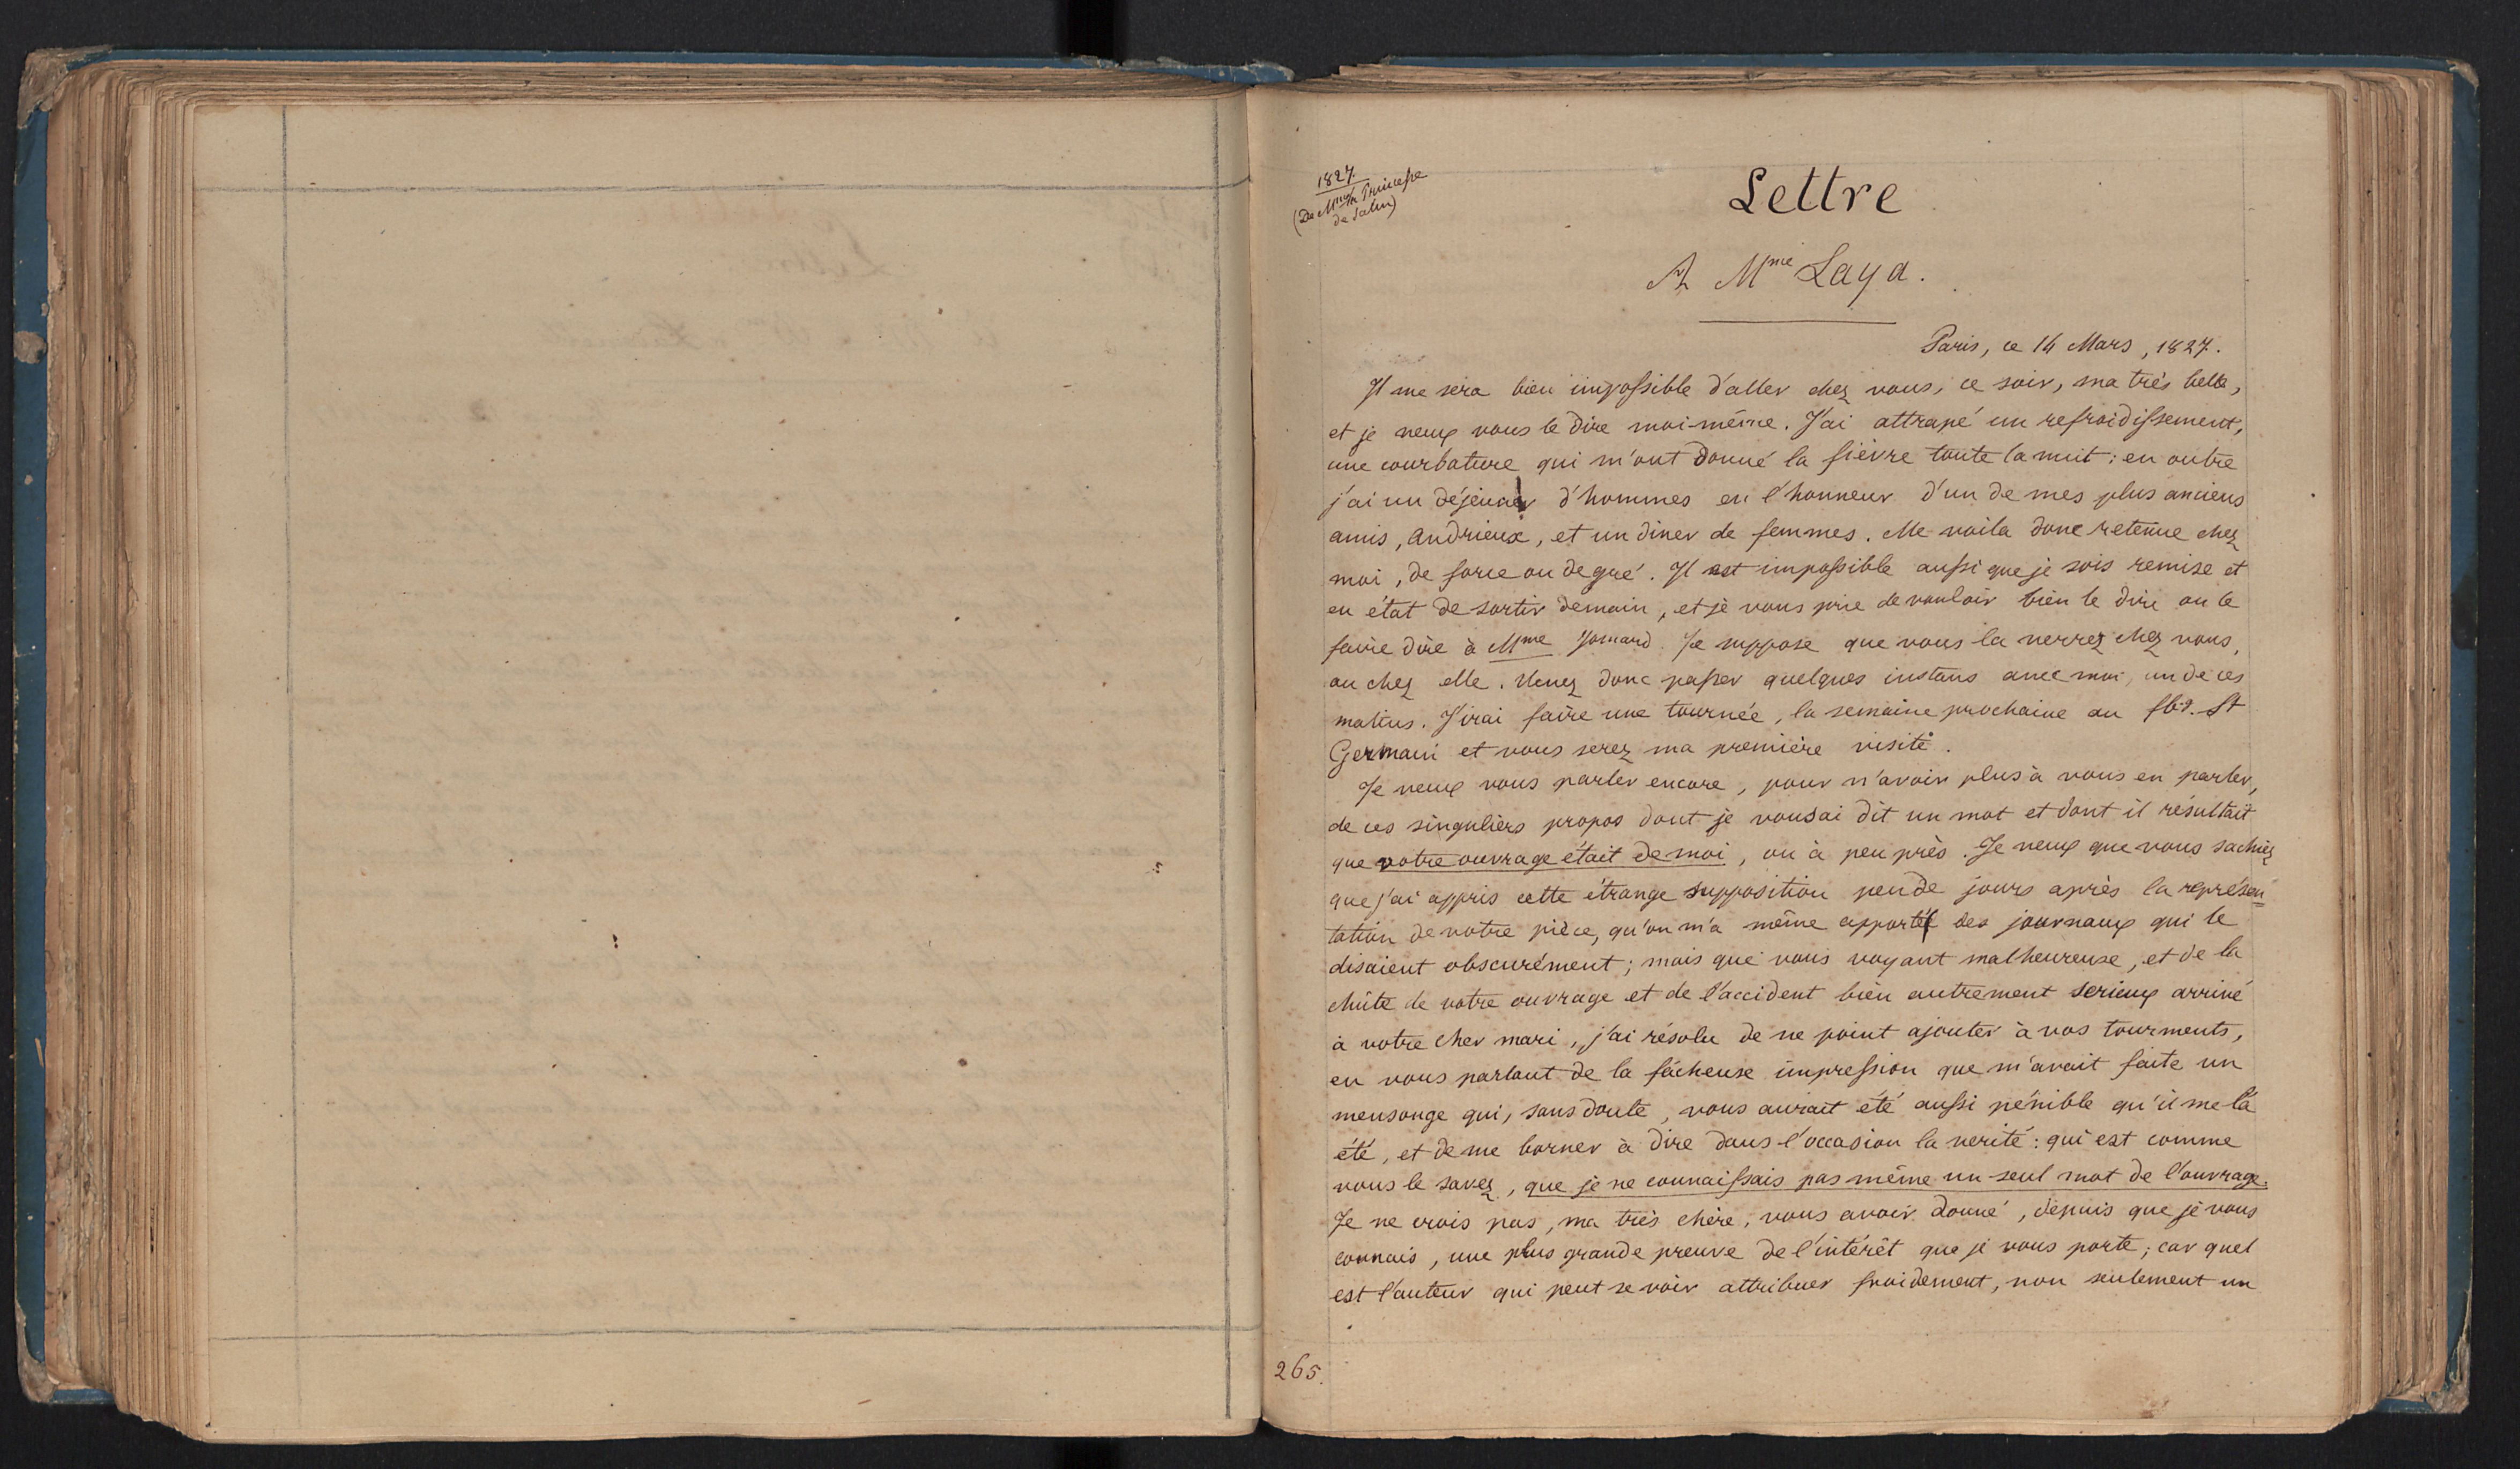 1827
(De Mme la Princesse
de Salm)
Lettre
A Mme Laya.
Paris, ce 14 Mars, 1827.
Il me sera bien impossible d'aller chez vous, ce soir, ma très belle,
et je veux vous le dire moi-même. J'ai attrapé un refroidissement,
une courbature qui m'ont donné la fièvre toute la nuit; en outre
j'ai un déjeuner d'hommes en l'honneur d'un de mes plus anciens
amis, Andrieux, et un diner de femmes. Me voila donc retenue chez
moi, de force ou de gré. Il est impossible aussi que je sois remise et
en état de sortir demain, et je vous prie de vouloir bien le dire ou le
faire dire à Mme Jomard. Je suppose que vous la verrez chez vous,
ou chez elle. Venez donc passer quelques instans avec moi, un de ces
matins. J'irai faire une tournée, la semaine prochaine au fbg. St
Germain et vous serez ma première visite.
Je veux vous parler encore, pour n'avoir plus à vous en parler,
de ces singuliers propos dont je vous ai dit un mot et dont il résultait
que votre ouvrage était de moi, ou à peu près. Je veux que vous sachiez
que j'ai appris cette étrange supposition peu de jours après la représen=
tation de votre pièce, qu'on m'a même apporté des journaux qui le
disaient obscurément; mais que vous voyant malheureuse, et de la
chûte de votre ouvrage et de l'accident bien autrement serieux arrivé
à votre cher mari, j'ai résolu de ne point ajouter à vos tourments,
en vous parlant de la fâcheuse impression que m'avait faite un
mensonge qui, sans doute, vous aurait été aussi pénible qu'il me l'a
été, et de me borner à dire dans l'occasion la verité: qui est comme
vous le savez, que je ne connaissais pas même un seul mot de l'ouvrage.
Je ne crois pas, ma très chère, vous avoir donné, depuis que je vous
connais, une plus grande preuve de l'intérêt que je vous porte; car quel
est l'auteur qui peut se voir attribuer froidement, non seulement un
265.